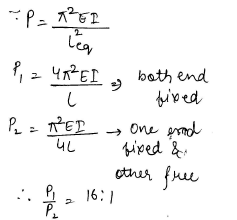 ∵ P = π²EI / l²eq
P₁ = 4π²EI / L ⇒ both end fixed
P₂ = π²EI / 4L → One end fixed & other free
∴ P₁/P₂ = 16:1